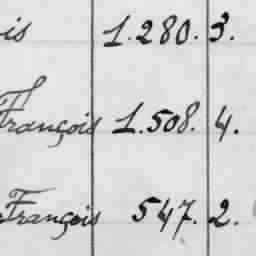 is 1.280. 3.
François 1.508. 4.
François 547. 2.